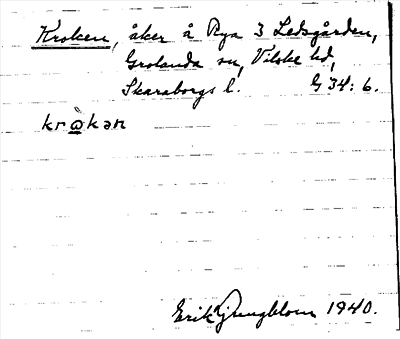 Kroken, åker å Rya 3 Ledsgården,
Grolanda sn, Vilske hd,
Skaraborgs l. G 34: 6.
kròkən
Erik Ljungblom 1940.